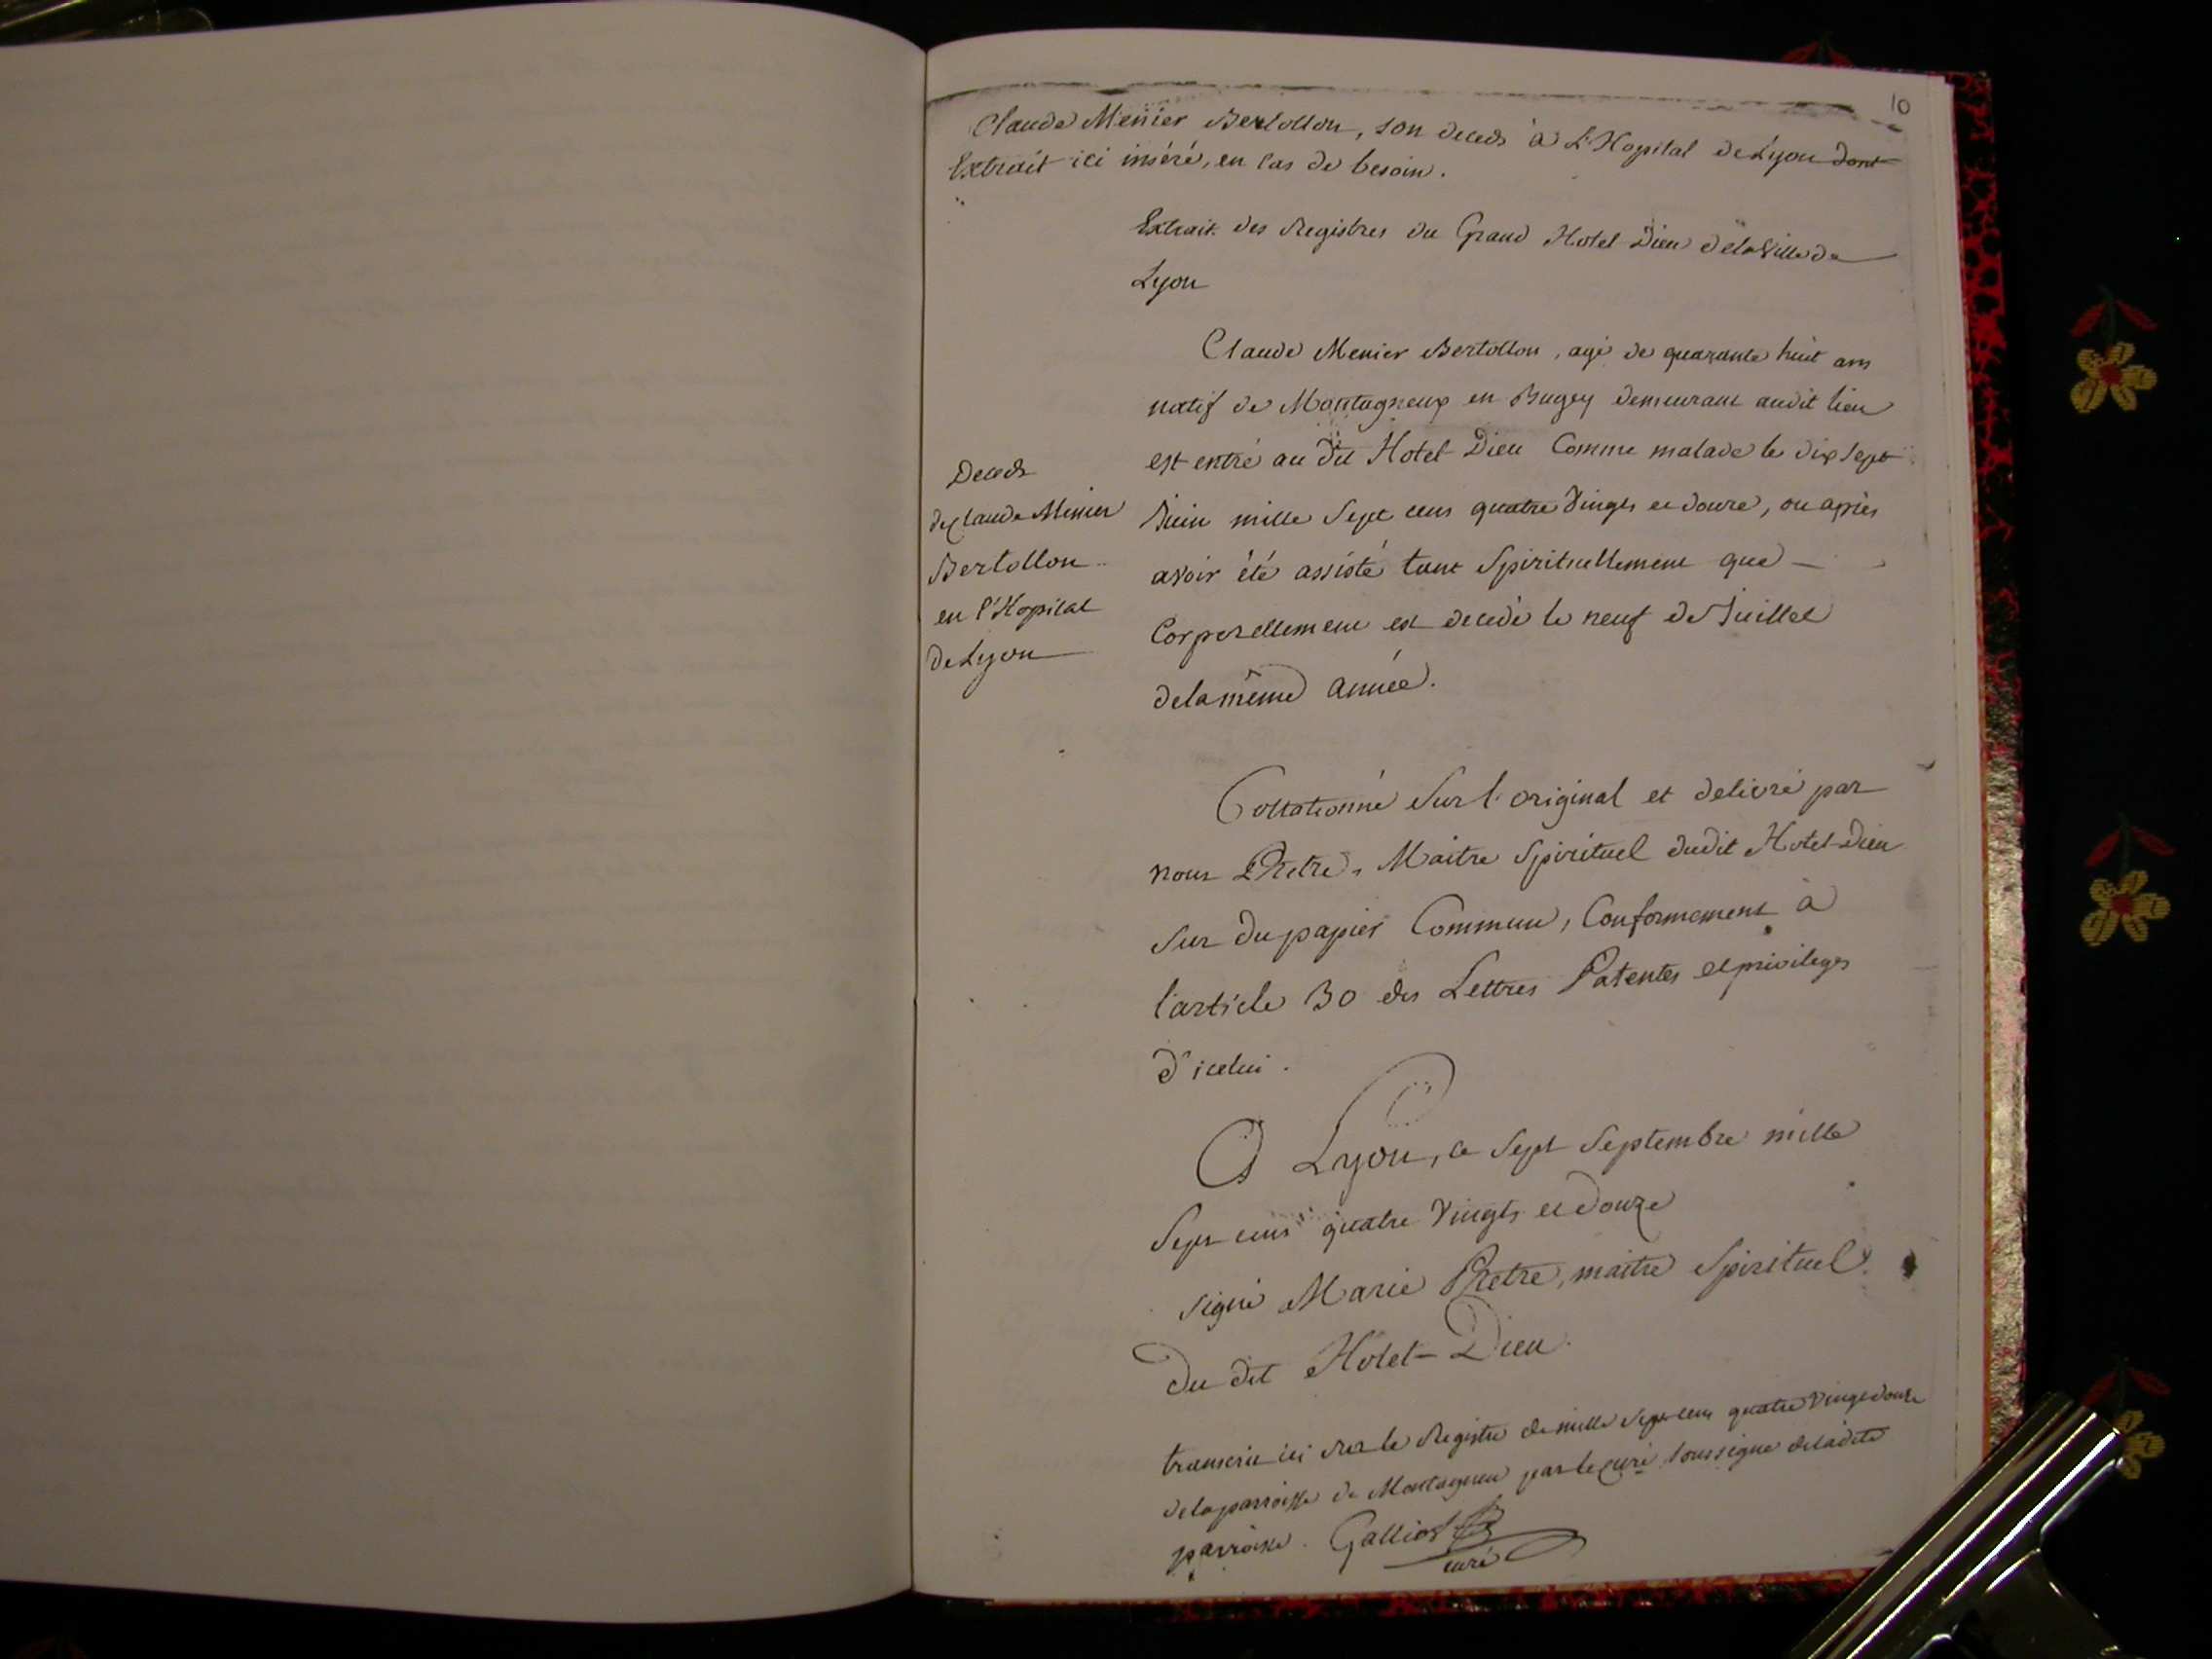 10
Claude Menier Bertollon, son deceds à L'Hopital de Lyon dont
Extrait ici inséré, en cas de besoin.
Extrait des Registres du Grand Hotel Dieu de la Ville de
Lyon
Claude Menier Bertollon, agé de quarante huit ans
natif de Montagneux en Bugey demeurant audit lieu
est entré au dit Hotel Dieu Comme malade le dix sept
Juin mille Sept cens quatre Vingts et douze, ou après
avoir été assisté tant Spirituellement que
Corporellement est decedé le neuf de Juillet
de la même année.
Deceds
de Claude Menier
Bertollon
en l'Hopital
de Lyon
Collationné Sur l'original et delivré par
nous Prêtre, Maitre Spirituel dudit Hotel-Dieu
Sur du papier Commun, Conformement à
l'article 30 des Lettres Patentes et privileges
d'icelui.
A Lyon, ce Sept Septembre mille
Sept cens quatre Vingts et douze
Signé Marie Prêtre, maitre Spirituel
Du dit Hotel-Dieu.
transcrit ici sur le Registre de mille Sept cens quatre Vingt douze
de la parroisse de Montagneu par le curé Soussigné de ladite
parroisse. Galliot
curé